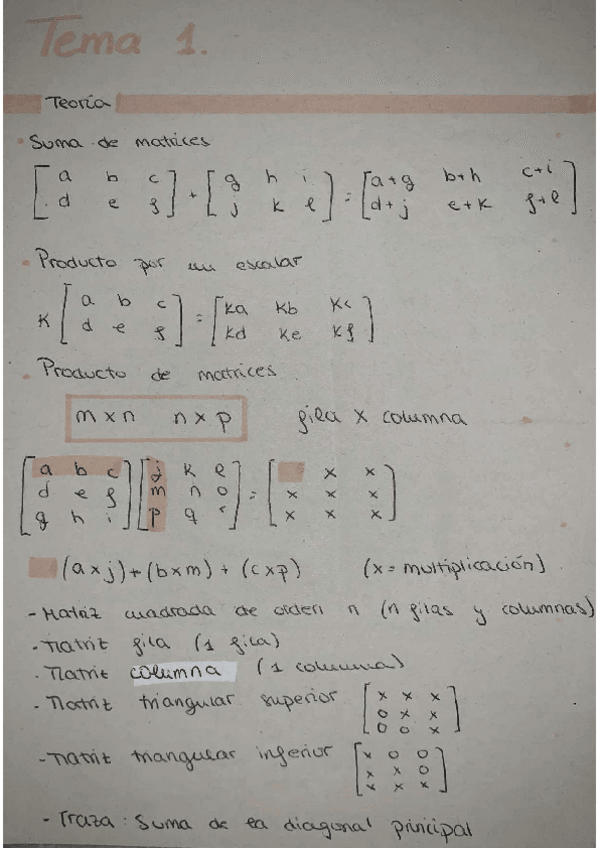 Tema 1.
Teoría
• Suma de matrices
[a b c] + [g h i] = [a+g b+h c+i]
[d e f] [j k l] [d+j e+k f+l]
• Producto por un escalar
K [a b c] = [ka kb kc]
[d e f] [kd ke kf]
• Producto de matrices
m x n n x p fila x columna
[a b c] [j k l] = [ x x]
[d e f] [m n o] [x x x]
[g h i] [p q r] [x x x]
(a x j) + (b x m) + (c x p) (x = multiplicación)
- Matriz cuadrada de orden n (n filas y columnas)
- Matriz fila (1 fila)
- Matriz columna (1 columna)
- Matriz triangular superior [x x x]
[0 x x]
[0 0 x]
- Matriz triangular inferior [x 0 0]
[x x 0]
[x x x]
- Traza: Suma de la diagonal principal